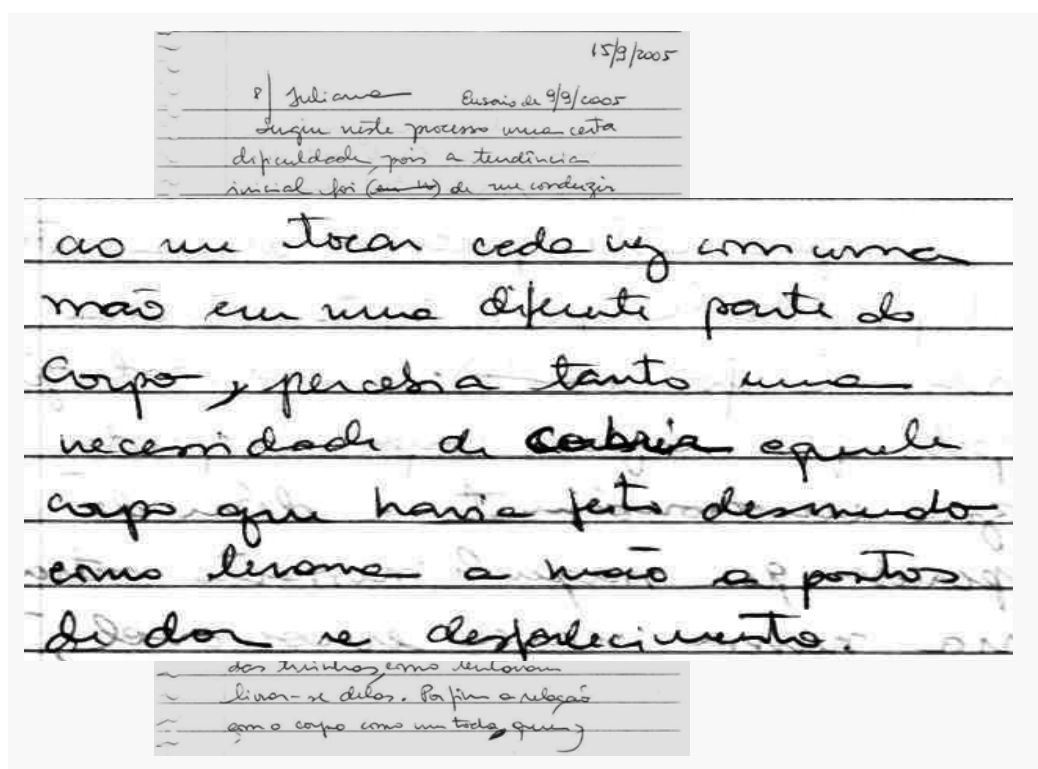 15/9/2005
8) Juliana Ensaio de 9/9/2005
Surgiu neste processo uma certa
dificuldade, pois a tendência
inicial foi de me conduzir
ao me tocar cada vez com uma
mão em uma diferente parte do
corpo, percebia tanto uma
necessidade de cobrir aquele
corpo que havia feito desnudo
como levava a mão a pontos
de dor e desfalecimento.
das como tentavam
livrar-se delas. Por fim a relação
com o corpo como um todo, que